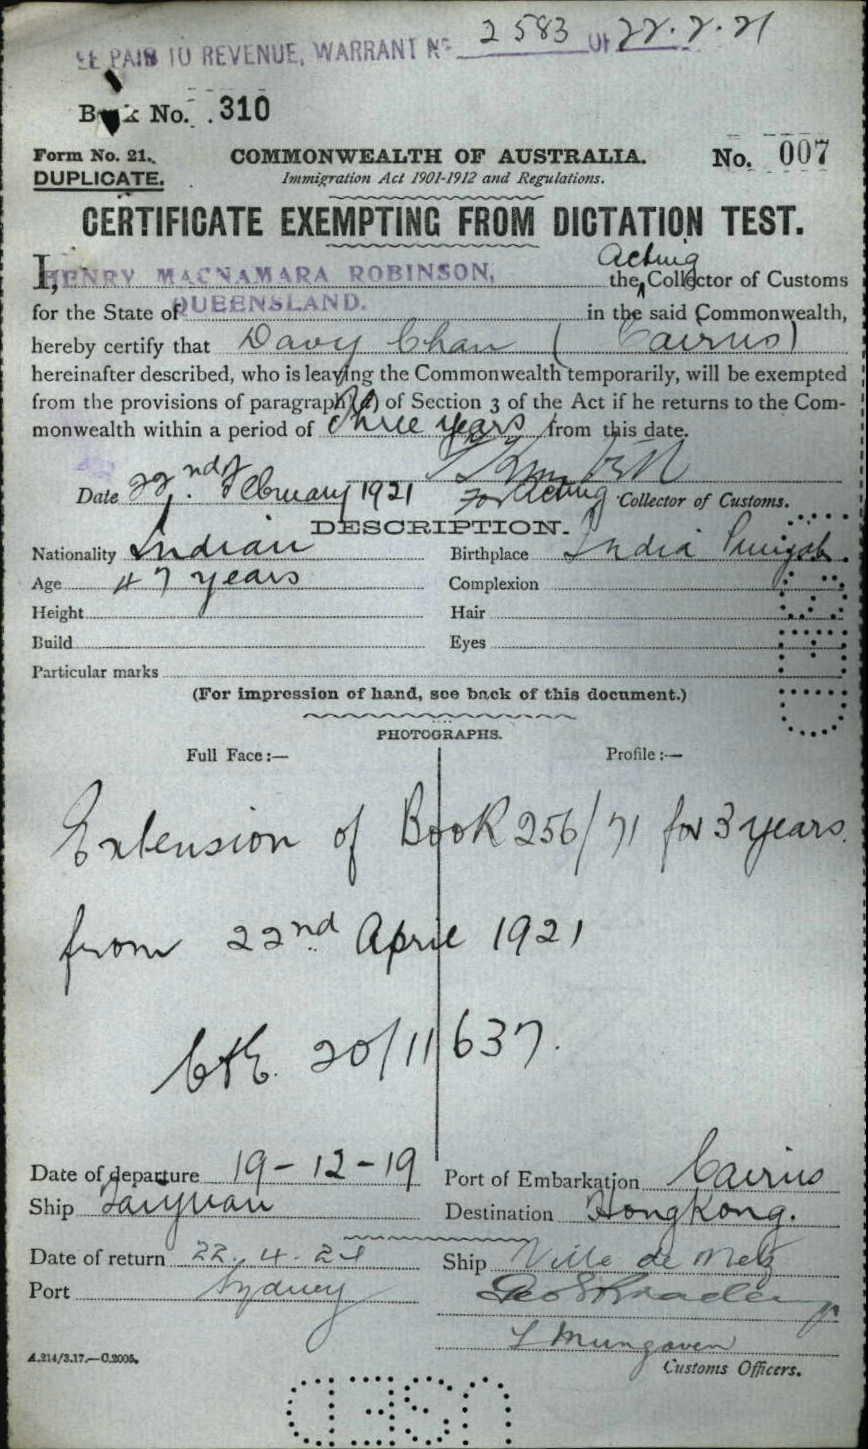 PAID TO REVENUE, WARRANT No 2583 OF 22.2.21
Book No. 310
Form No. 21. COMMONWEALTH OF AUSTRALIA. No. 007
DUPLICATE. Immigration Act 1901-1912 and Regulations.
CERTIFICATE EXEMPTING FROM DICTATION TEST.
Acting
I, HENRY MACNAMARA ROBINSON, the Collector of Customs
for the State of QUEENSLAND. in the said Commonwealth,
hereby certify that Davy Chan (Cairns)
hereinafter described, who is leaving the Commonwealth temporarily, will be exempted
from the provisions of paragraph (a) of Section 3 of the Act if he returns to the Com-
monwealth within a period of three years from this date.
Date 22nd February 1921 for Acting Collector of Customs.
DESCRIPTION.
Nationality Indian Birthplace India Punjab
Age 47 years Complexion
Height Hair
Build Eyes
Particular marks
(For impression of hand, see back of this document.)
PHOTOGRAPHS.
Full Face:— Profile:—
Extension of Book 256/71 for 3 years.
from 22nd April 1921
C&E. 20/11637.
Date of departure 19-12-19 Port of Embarkation Cairns
Ship Taiyuan Destination HongKong.
Date of return 22.4.24 Ship Ville de Metz
Port Sydney
L Mungoven
A.214/3.17.—C.2005. Customs Officers.
USED